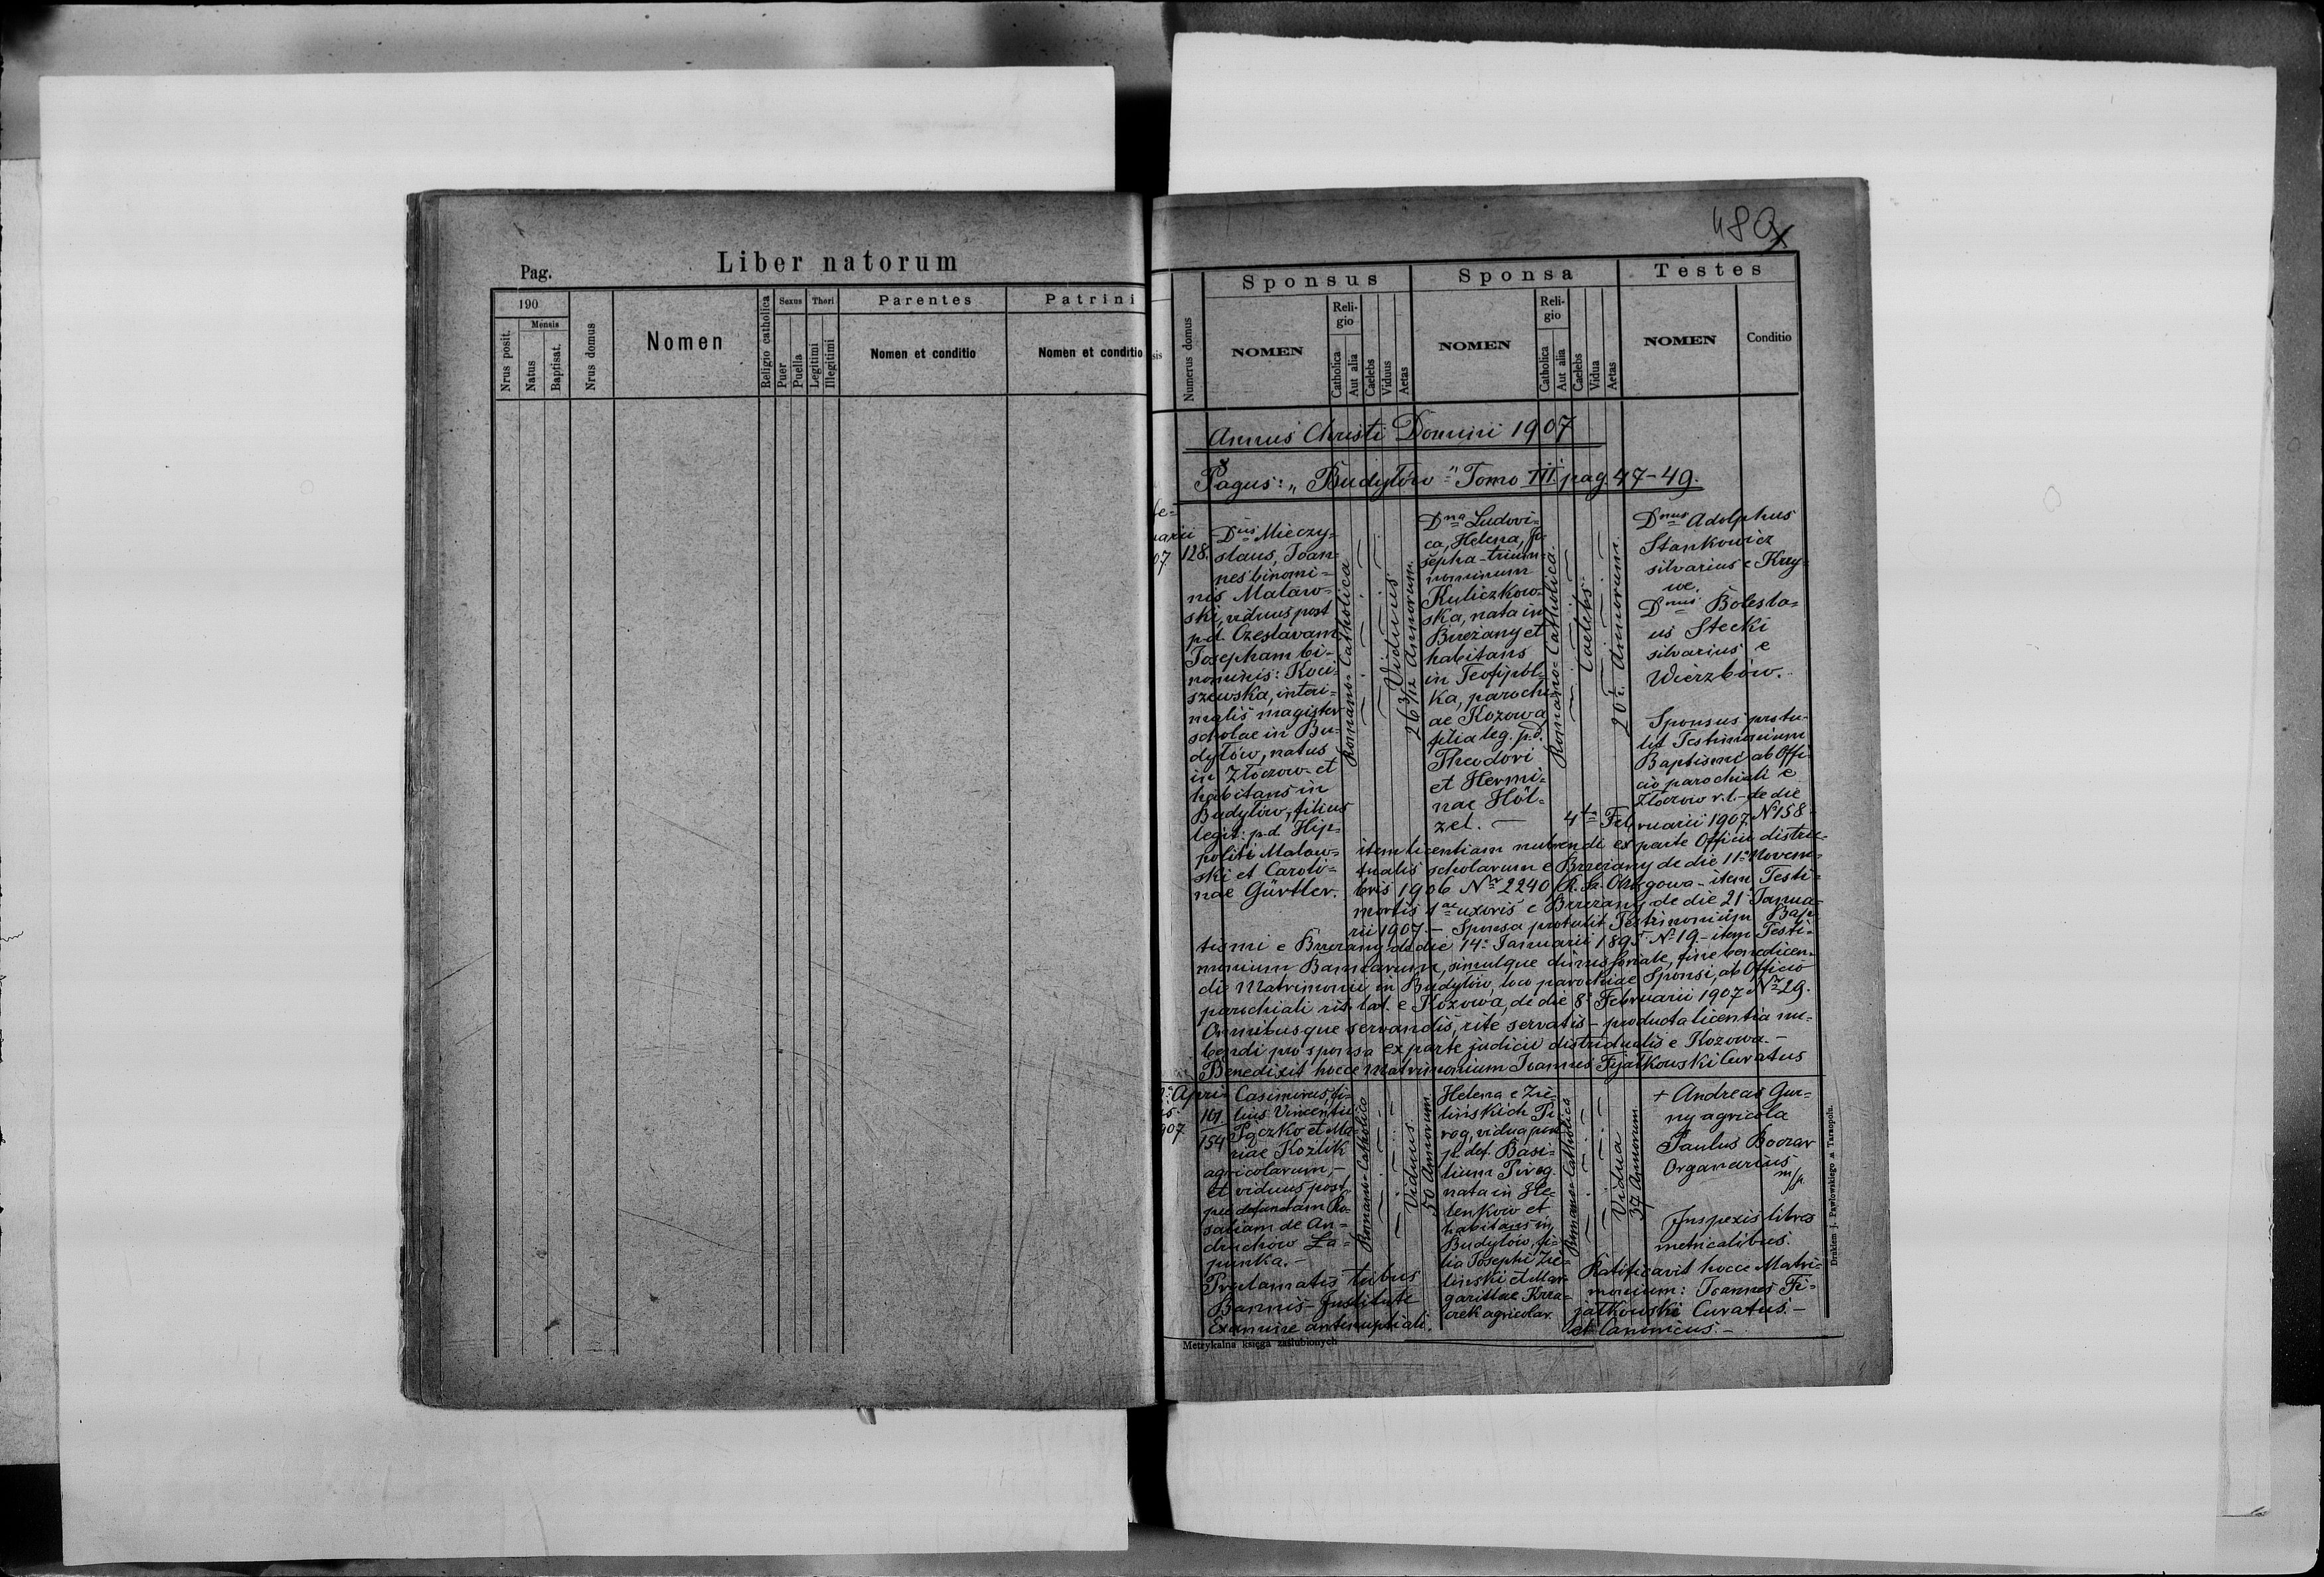 Pag.
Liber natorum
190
Nrus posit.
Mensis
Natus
Baptisat.
Nrus domus
Nomen
Religio catholica
Sexus
Puer
Puella
Thori
Legitimi
Illegitimi
Parentes
Nomen et conditio
Patrini
Nomen et conditio
48
sis
Numerus domus
Sponsus
NOMEN
Reli-
gio
Catholica
Aut alia
Caelebs
Viduus
Aetas
Sponsa
NOMEN
Reli-
gio
Catholica
Aut alia
Caelebs
Vidua
Aetas
Testes
NOMEN
Conditio
Annus Christi Domini 1907
Pagus: „Budyłów" Tomo III. pag. 47-49.
07
128.
Dnus Mieczy=
slaus, Joan=
nes binomi=
nis Malaw=
ski, viduus post
p.d. Czeslavam
Josepham bi-
nominis: Koci=
szewska, interi=
malis magister
scholae in Bu-
dyłów, natus
in Złoczow et
habitans in
Budyłów, filius
legit: p.d. Hip=
politi Malaw=
ski et Caroli=
nae Gürtler.
Romano-Catholica
Viduus
26 3/12 Annorum.
Dna Ludovi=
ca, Helena, Jo=
sepha-trium
nominum
Kuliczkow=
ska, nata in
Brzeżany et
habitans
in Teofipol=
ka, parochi
ae Kozowa
filia leg. p.d.
Theodori
et Hermi=
nae Höl=
zel. —
Romano-Catholica.
Caelebs.
20 Annorum.
Dnus Adolphus
Stankowicz
silvarius e Krzy=
we.
Dnus Bolesla=
us Stecki
silvarius e
Wierzbów.
Sponsus protu-
lit Testimonium
Baptismi ab Offi-
cio parochiali e
Złoczow r.l. - de die
4ta Februarii 1907. No 158
item licentiam nubendi ex parte Officii distric=
tualis scholarum e Brzeżany de die 11a Novem=
bris 1906 Nr 2240 R. Sz. Okręgowa - item Testi=
mortis 1ae uxoris e Brzeżany de die 21 Janua=
rii 1907. — Sponsa protulit Testimonium Bap=
tismi e Brzeżany de die 14a Januarii 1895 No 19. - item Testi=
monium Bannorum, simulque dimissoriale, fine benedicen=
di Matrimonii in Budyłów, loco parochiae Sponsi, ab Officio
parochiali rit. lat. e Kozowa, de die 8a Februarii 1907 Nr 29.
Omnibusque servandis, rite servatis - producta licentia nu=
bendi pro sponsa ex parte judicii districtualis e Kozowa. —
Benedixit hocce Matrimonium Joannes Fijałkowski Curatus
Apri
907
161
154
Casimirus, fi-
lius Vincentii
Pączko et Ma-
riae Kozlik
agricolarum, -
et viduus post
pie defunctam Ro=
saliam de An=
druchów Ła=
punka. —
Proclamatis tribus
Bannis - Instituto
Examine antenuptiali.
Romano-Catholica
Viduus
50 Annorum
Helena e Zie=
lińskich Pi=
rog, vidua post
p. def. Basi=
lium Pirog
nata in He=
lenkow et
habitans in
Budyłow, fi=
lia Josephi Zie=
linski et Mar=
garittae Krza=
czek agricolar.
Romano-Catholica
Vidua
37 Annorum
+ Andreas Gur=
ny agricola
Paulus Boczar
Organarius
m/p
Inspexis libros
metricalibus.
Ratificavit hocce Matri=
monium: Joannes Fi=
jałkowski Curatus. -
et Canonicus. —
Metrykalna księga zaślubionych
Drukiem J. Pawłowskiego w Tarnopolu.